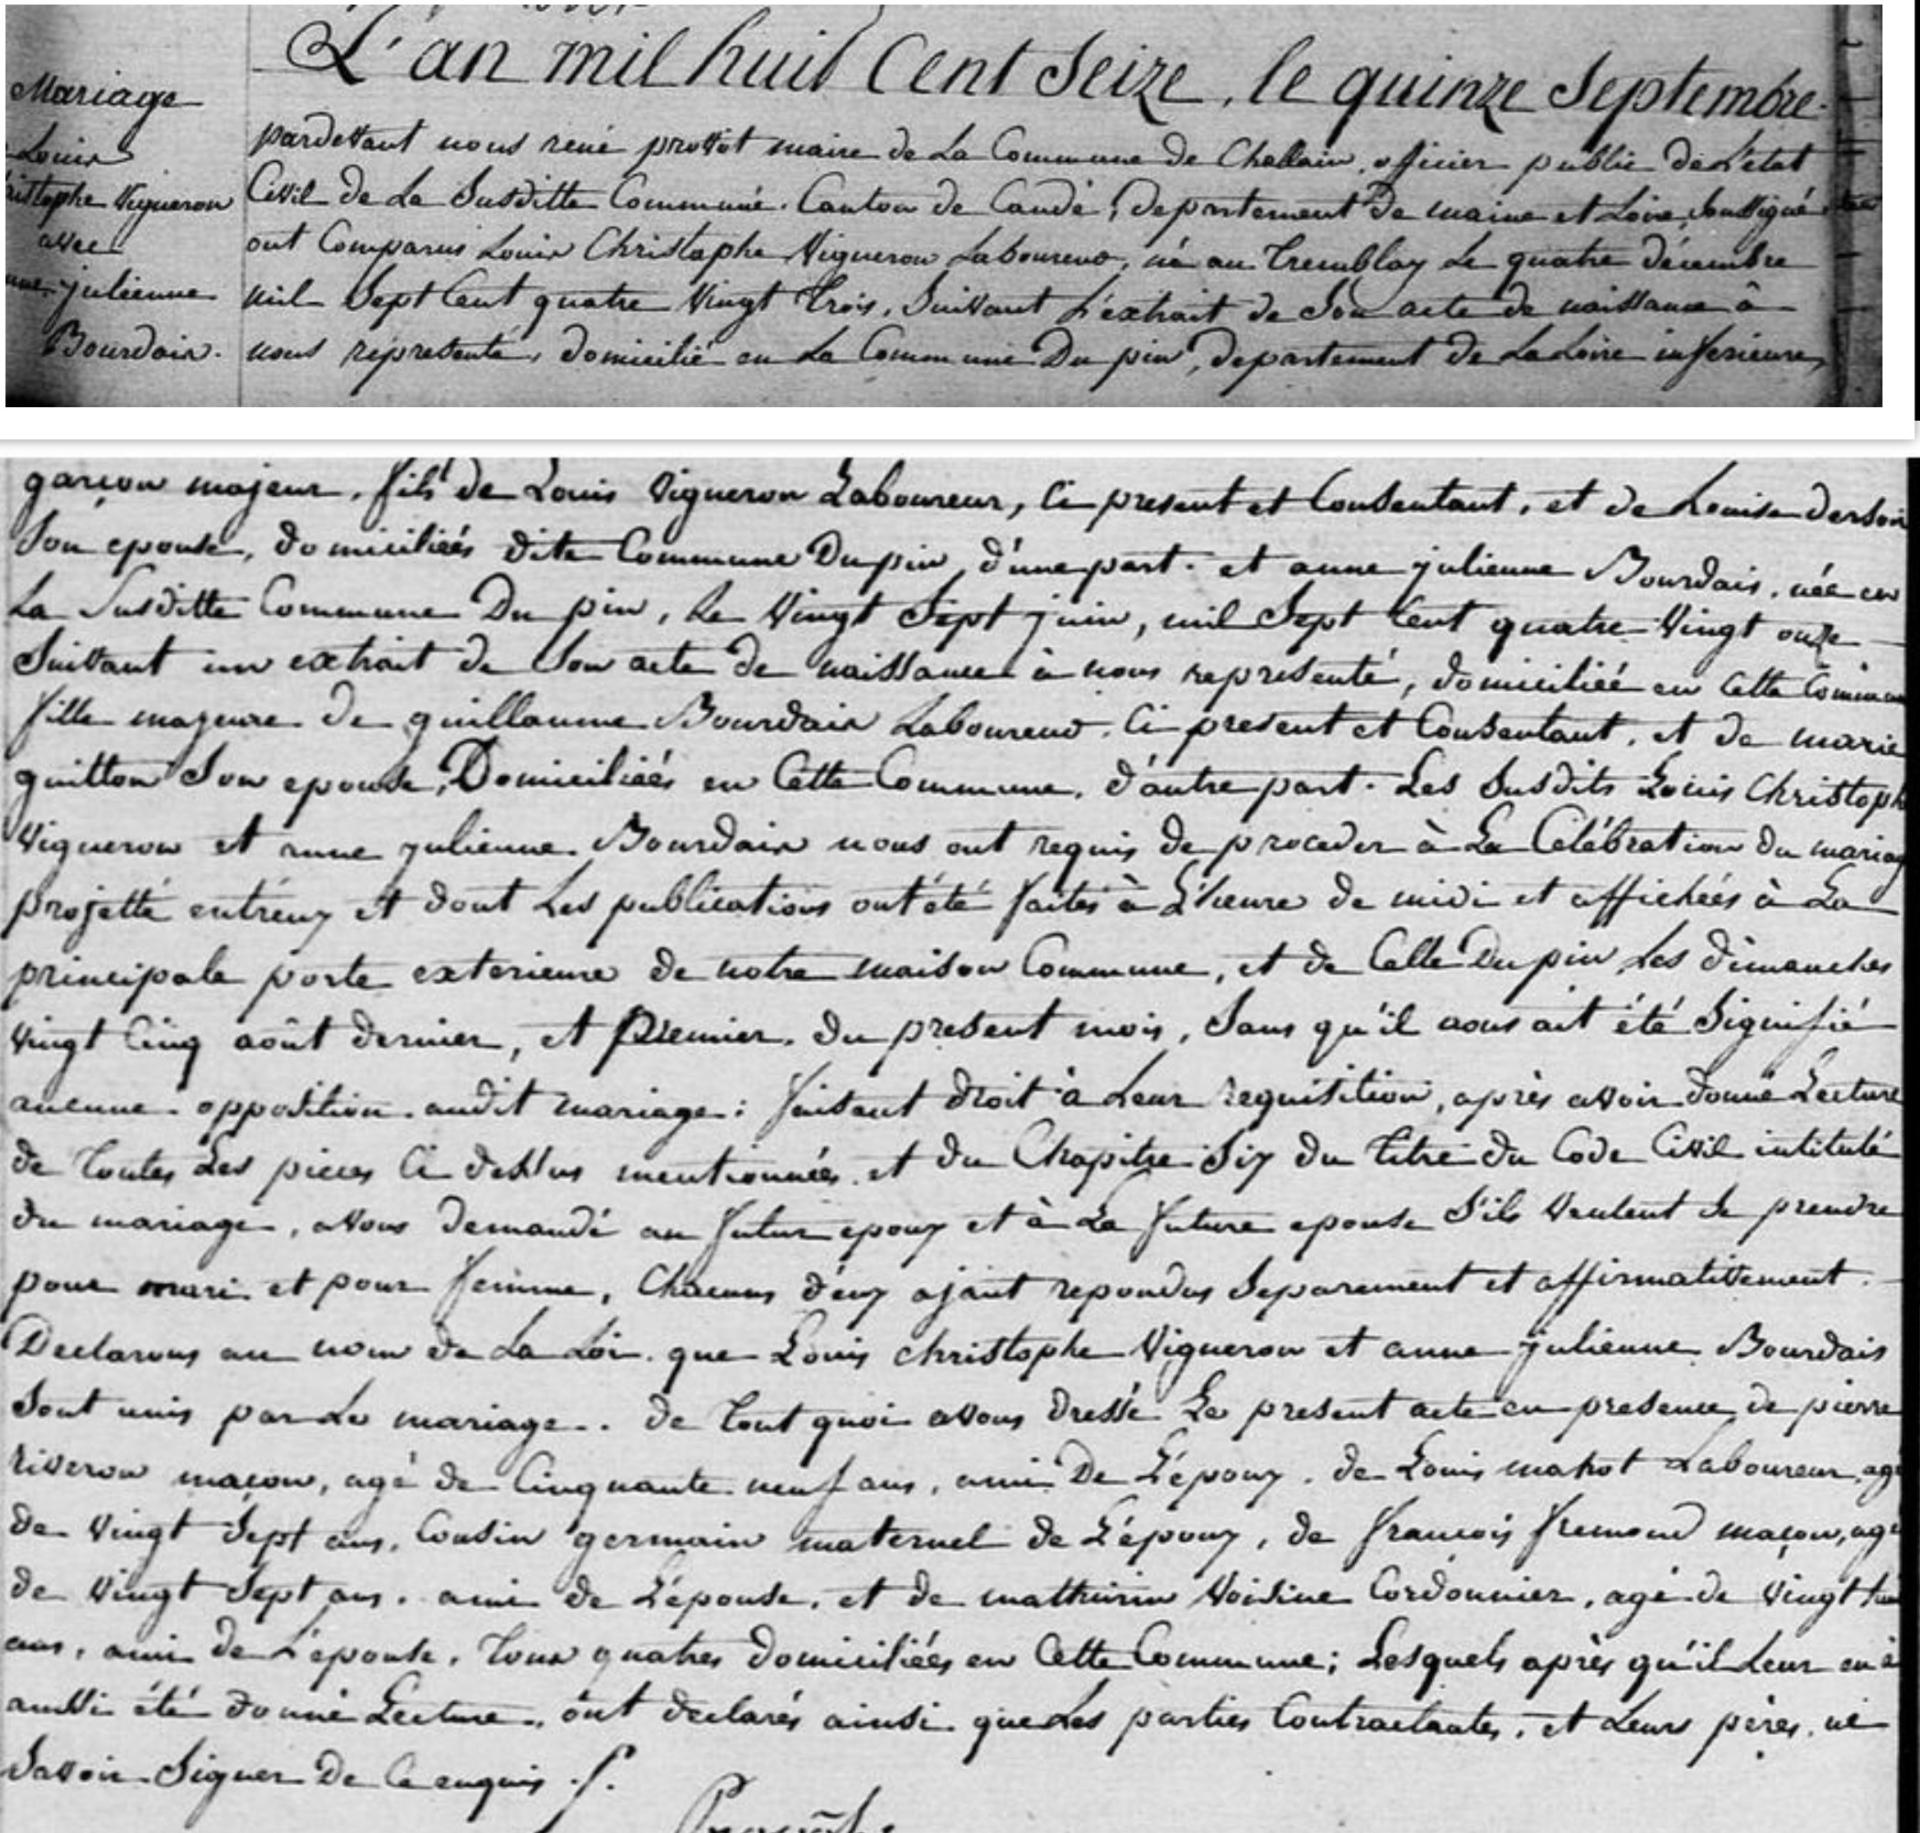 L'an mil huit Cent Seize, le quinze Septembre
Mariage
Louis
ristophe Vigneron
avec
julienne
Bourdais.
pardevant nous réné provôt maire de La Commune de Challain, officier public de L'état
Civil de La Susditte Commune. Canton de Candé, département De maine et Loire, Soussigné
ont Comparus Louis Christophe Vigneron Laboureur, né au Tremblay Le quatre décembre
mil Sept Cent quatre Vingt Trois, Suivant L'extrait de Son acte de naissance à
nous représenté, domicilié en La Commune Du pin, département de La Loire inferieure,
garçon majeur, fils de Louis Vigneron Laboureur, Ci présent et Consentant, et de Louise
Son epouse, domiciliés dite Commune Du pin, d'une part. et anne julienne Bourdais, née en
La Susditte Commune Du pin, Le Vingt Sept juin, mil Sept Cent quatre Vingt onze
Suivant un extrait de Son acte de naissance à nous représenté, domiciliée en Cette Commune
fille majeure de guillaume Bourdais Laboureur. Ci présent et Consentant, et de marie
guitton Son epouse, Domiciliés en Cette Commune, d'autre part. Les Susdits Louis Christophe
Vigneron et anne julienne Bourdais nous ont requis de proceder à La Célébration du mariage
projetté entr'eux et dont Les publications ont été faites à L'heure de midi et affichées à La
principale porte exterieure de notre maison Commune, et de Celle Du pin, Les dimanches
vingt Cinq août dernier, et Premier du présent mois, Sans qu'il nous ait été Signifié
aucune opposition audit mariage: faisant droit à Leur requisition, après avoir donné Lecture
de Toutes Les pieces Ci dessus mentionnées et du Chapitre Six du Titre du Code Civil intitulé
du mariage, avons demandé au futur epoux et à La future epouse S'ils Veulent Se prendre
pour mari et pour femme, Chacuns d'eux ajant repondus Séparement et affirmativement.
Declarons au nom de La Loi que Louis christophe Vigneron et anne julienne Bourdais
Sont unis par Le mariage. de Tout quoi avons dressé Le présent acte en présence de pierre
riveron maçon, agé de Cinquante neuf ans, ami De L'époux, de Louis mahot Laboureur, agé
de Vingt Sept ans, Cousin germain maternel de L'époux, de francois fremond maçon, agé
de Vingt Sept ans, ami de L'épouse, et de mathurin Voisine Cordonnier, agé de Vingt
ans, ami de L'épouse, Tous quatres domiciliées en Cette Commune; Lesquels après qu'il Leur en à
aussi été donné Lecture, ont declarés ainsi que Les parties Contractantes, et Leurs pères, ne
Savoir Signer De Ce enquis ./.